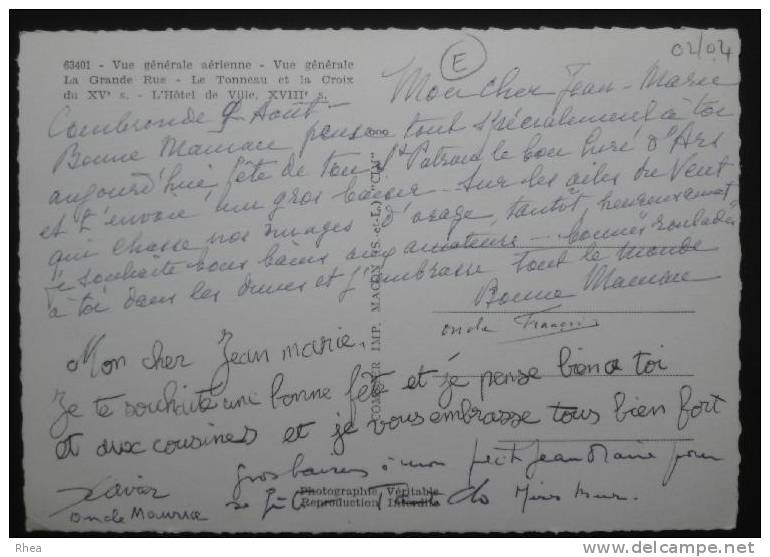 63401 - Vue générale aérienne - Vue générale
La Grande Rue - Le Tonneau et la Croix
du XVe s. - L'Hôtel de Ville, XVIIIe s.
E
02/04
Mon cher Jean-Marie
Combronde 9 Août
Bonne Maman pense tout spécialement à toi
aujourd'hui fête de ton St Patron le bon Curé d'Ars
et t'envoie un gros baiser. Sur les ailes du Vent
qui chasse nos nuages d'orage, tantôt, heureusement
je souhaite bons bains aux amateurs - bonnes "roulades"
à toi dans les dunes et j'embrasse tout le monde
Bonne Maman
oncle François
Mon cher Jean marie,
Je te souhaite une bonne fête et je pense bien a toi
et aux cousines et je vous embrasse tous bien fort
Xavier
gros baisers à mon petit Jean Marie pour
sa fête
oncle Maurice
COMBIER IMP. MACON (S.-et-L.) "CIM"
Photographie Véritable
Reproduction Interdite
Rhea
delcampe.net